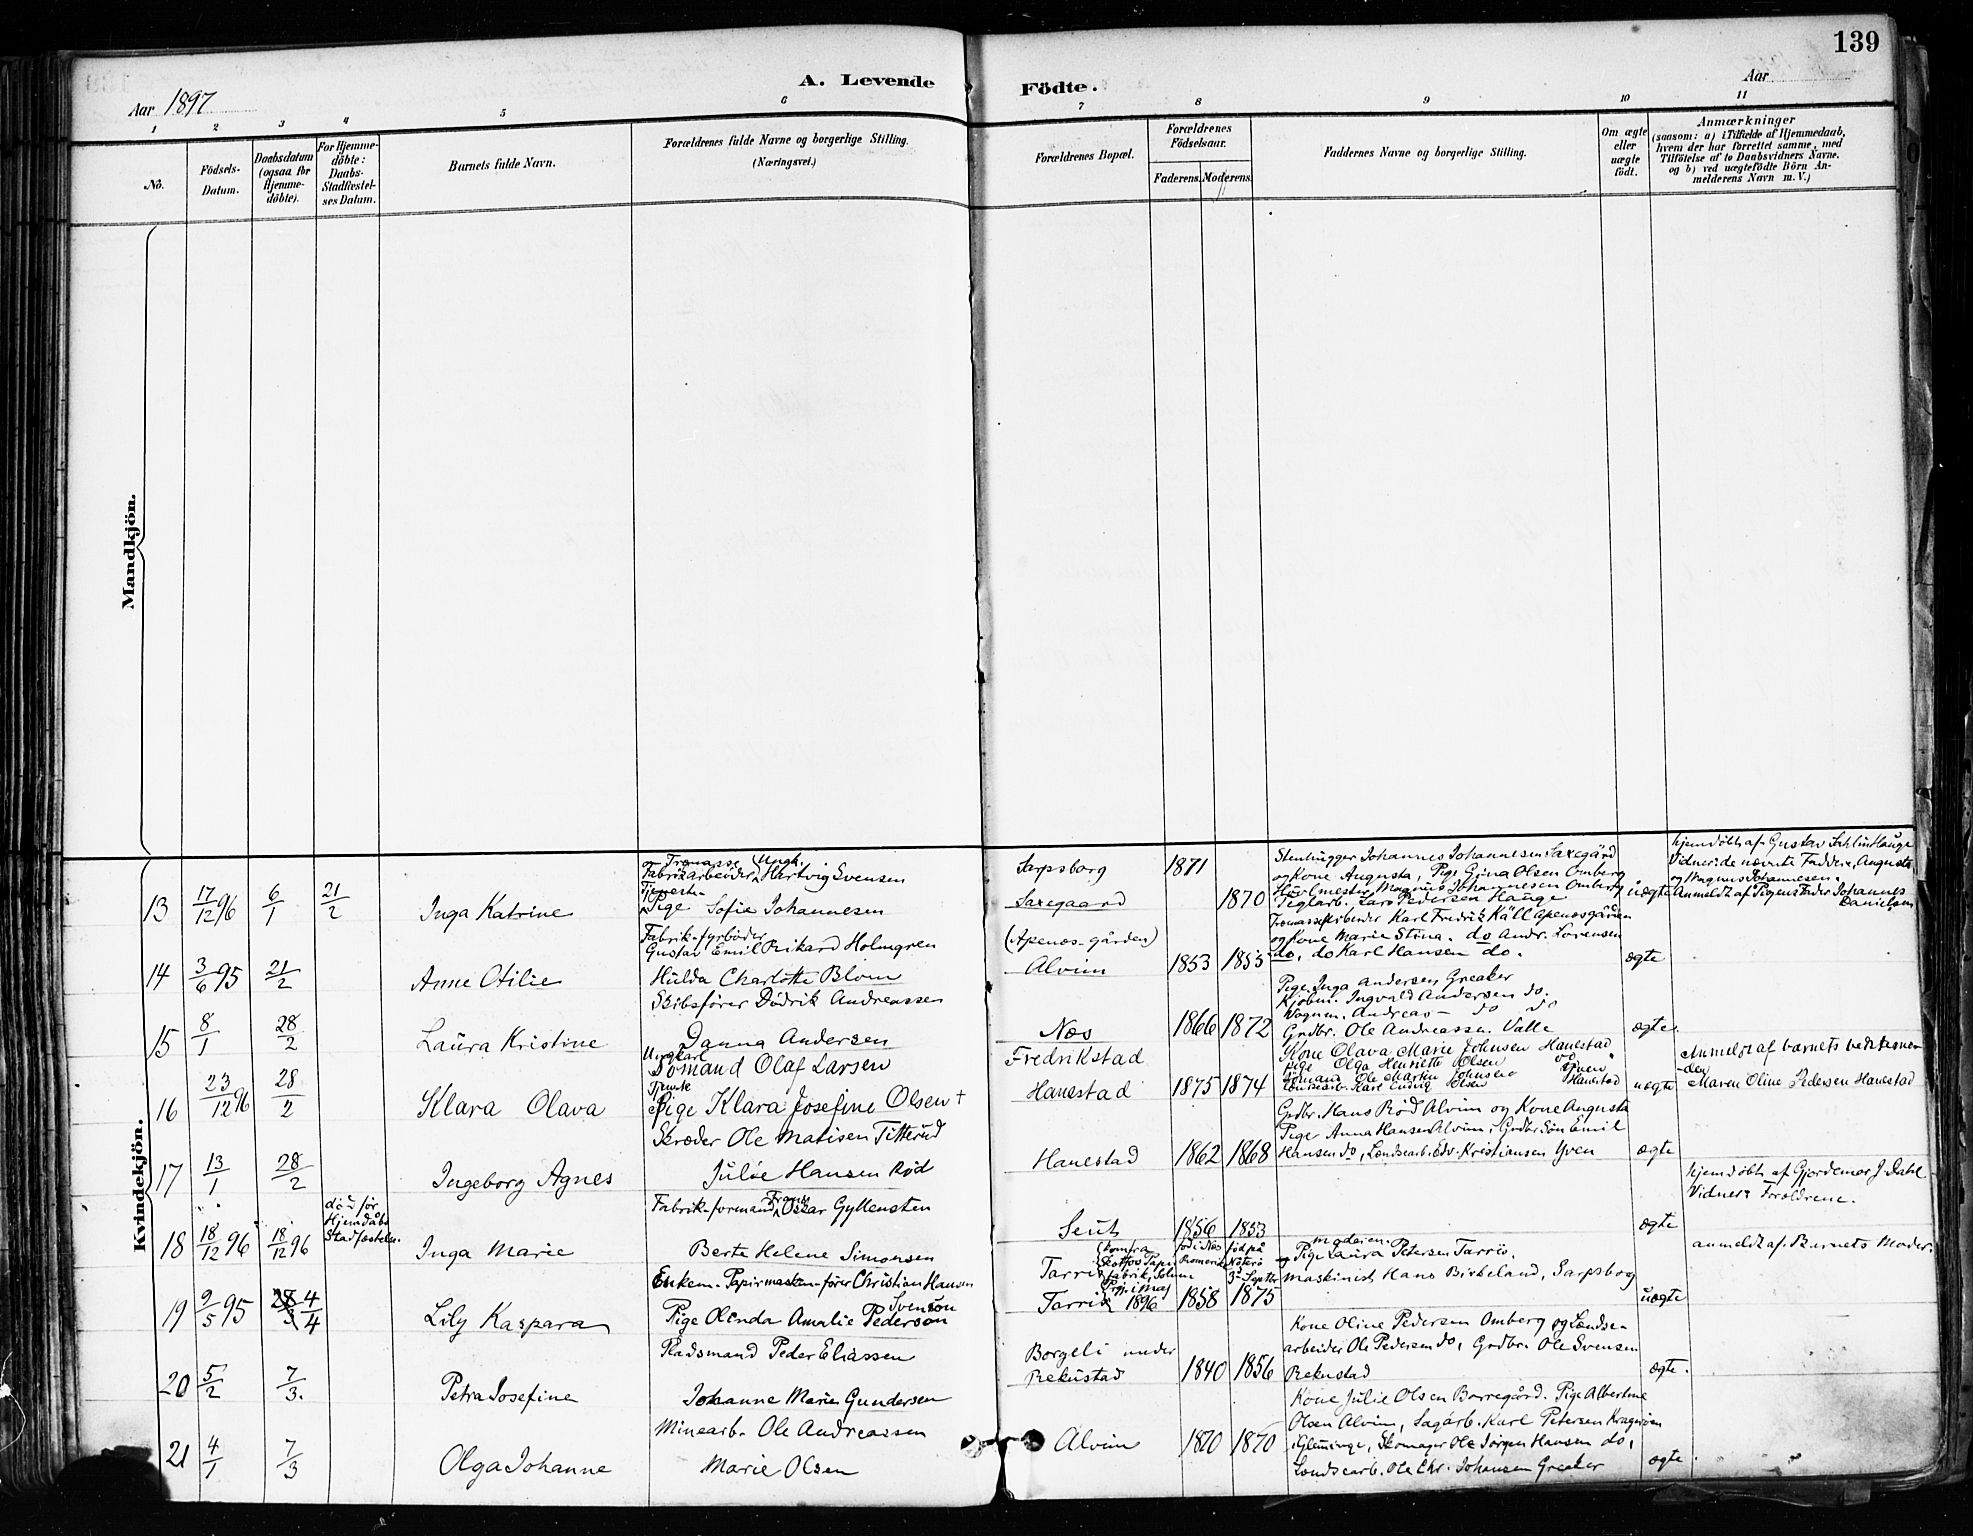 139
A. Levende Födte.
Aar 1897
Aar
1 2 3 4 5 6 7 8 9 10 11
No.
Födsels-
Datum.
Daabsdatum
(ogsaa for
Hjemme-
döbte).
For Hjemme-
döbte:
Daabs-
Stadfæstel-
ses Datum.
Barnets fulde Navn.
Forældrenes fulde Navne og borgerlige Stilling.
(Næringsvei.)
Forældrenes Bopæl.
Forældrenes
Födselsaar.
Faderens. Moderens.
Faddernes Navne og borgerlige Stilling.
Om ægte
eller
uægte
født.
Anmærkninger
(saasom: a) i Tilfælde af Hjemmedaab,
hvem der har forrettet samme, med
Tilføielse af to Daabsvidners Navne,
og b) ved uægtefödte Börn An-
melderens Navn m. V.)
Mandkjön.
Kvindekjön.
13 17/12 96 6/1 21/2 Inga Katrine
Fabrikarbeider Ungk. Hartvig Evensen
Tjeneste-
Pige Sofie Johannesen
Sarpsborg 1871
Saxegaard 1870
Stenhugger Johannes Johannesen Saxegård
og Kone Augusta, Pige Gina Olsen Omberg
Magnus Johannesen Omberg
Teglarb. Lars Pedersen Hauge
uægte
hjemdøbt af Gustav Hauge
Vidner: de nævnte Faddere, Augusta
og Magnus Johannesen.
Anmeldt af Pigens Fader Johannes
Danielsen
14 3/6 95 21/2 Anne Otilie
Fabrik-fyrbøder
Gustav Emil Rikard Holmgren
Hulda Charlotte Blom
(Apenæs-gården)
Alvim 1853 1853
Karl Fredrik Käll Apenæsgården
og Kone Marie Stina. do Andr. Lorensen
do, do Karl Hansen do.
ægte
15 8/1 28/2 Laura Kristine
Skibsfører Dødrik Andreassen
Danna Andersen
Næs 1866 1872
Pige Inga Andersen Greaker
Kjøbm. Ingvald Andersen do.
Vognm. Andreas - do do
Grdbr. Ole Andreassen. Valle
ægte.
16 23/12 96 28/2 Klara Olava
Ungkarl
Sømand Olaf Larsen
Tjeneste
Pige Klara Josefine Olsen +
Fredrikstad
Hanestad 1875 1874
Kone Olava Marie Johnsen Hanestad
Pige Olga Henriette Olsen do
Sømand Ole Martin Johnsen Yven
Landsearb. Karl Ludvig Olsen Hanestad
uægte
Anmeldt af barnets
Maren Oline Pedersen Hanestad
17 13/1 28/2 Ingeborg Agnes
Skræder Ole Matisen Titterud
Julie Hansen Rød
Hanestad 1862 1868
Grdbr. Hans Rød Alvim og Kone Augusta
Pige Anna Hansen Alvim, Grdbr Søn Emil
Hansen do, Landsearb. Edv. Kristiansen Yven
ægte
18 18/12 96 18/12 96
død før
Hjemdåbs
Stadfæstelse.
Inga Marie
Fabrik-formand Frans Oskar Gyllensten
Berte Helene Simonsen
Seut 1856 1853
ægte
hjemdøbt af Gjordemor J. Dahl
Vidner: Forældrene.
19 9/5 95 28/3 4/4 Lily Kaspara
Enkem. Papirmaskin-fører Christian Hansen
Svenson
Pige Olenda Amalie Pederson
Tarris
Tarris 1896 1858 1875
moderen.
og Pige Laura Petersen Tarris.
Maskinist Hans Birkeland, Sarpsborg
uægte
anmeldt af Barnets Moder.
20 5/2 7/3. Petra Josefine
Pladsmand Peder Eliassen
Johanne Marie Gundersen
Borgeli under
Rekustad 1840 1856
Kone Oline Pedersen Omberg og Landse-
arbeider Ole Pedersen do, Grdbr. Ole Svensen
Rekustad
ægte.
21 4/1 7/3 Olga Johanne
Minearb. Ole Andreassen
Marie Olsen
Alvim 1870 1870
Kone Julie Olsen Borregård. Pige Albertine
Olsen Alvim, Sagarb. Karl Petersen Kragerøen
i Glemminge, Skomager Ole Jørgen Hansen do,
Landsearb. Ole Chr. Johansen Greaker
ægte.